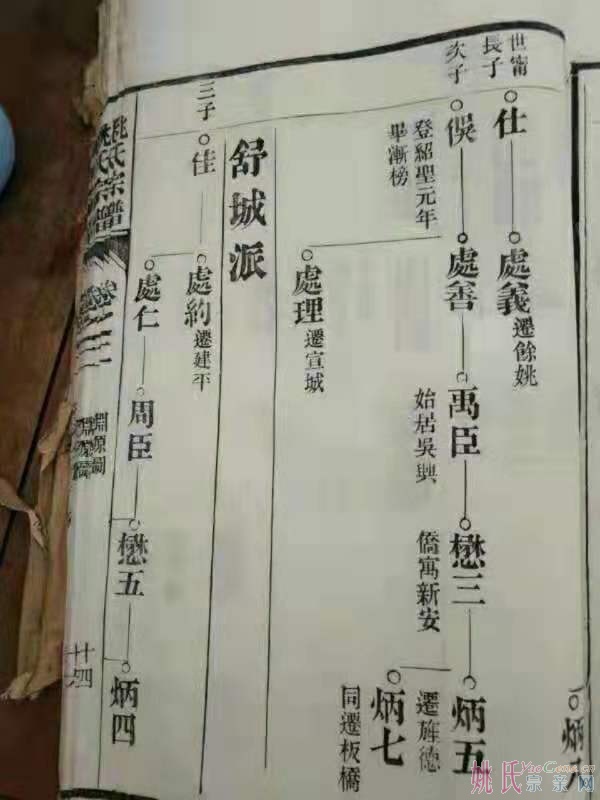 世甯
長子
仕
處義
遷餘姚
次子
俁
處善
禹臣
懋三
炳五
登紹聖元年
畢漸榜
始居吳興
僑寓新安
遷旌德
炳七
同遷板橋
處理
遷宣城
舒城派
三子
佳
處約
遷建平
處仁
周臣
懋五
炳四
姚氏宗譜
卷
淵源圖
十四
炳
姚氏宗亲网
YaoGens.cn